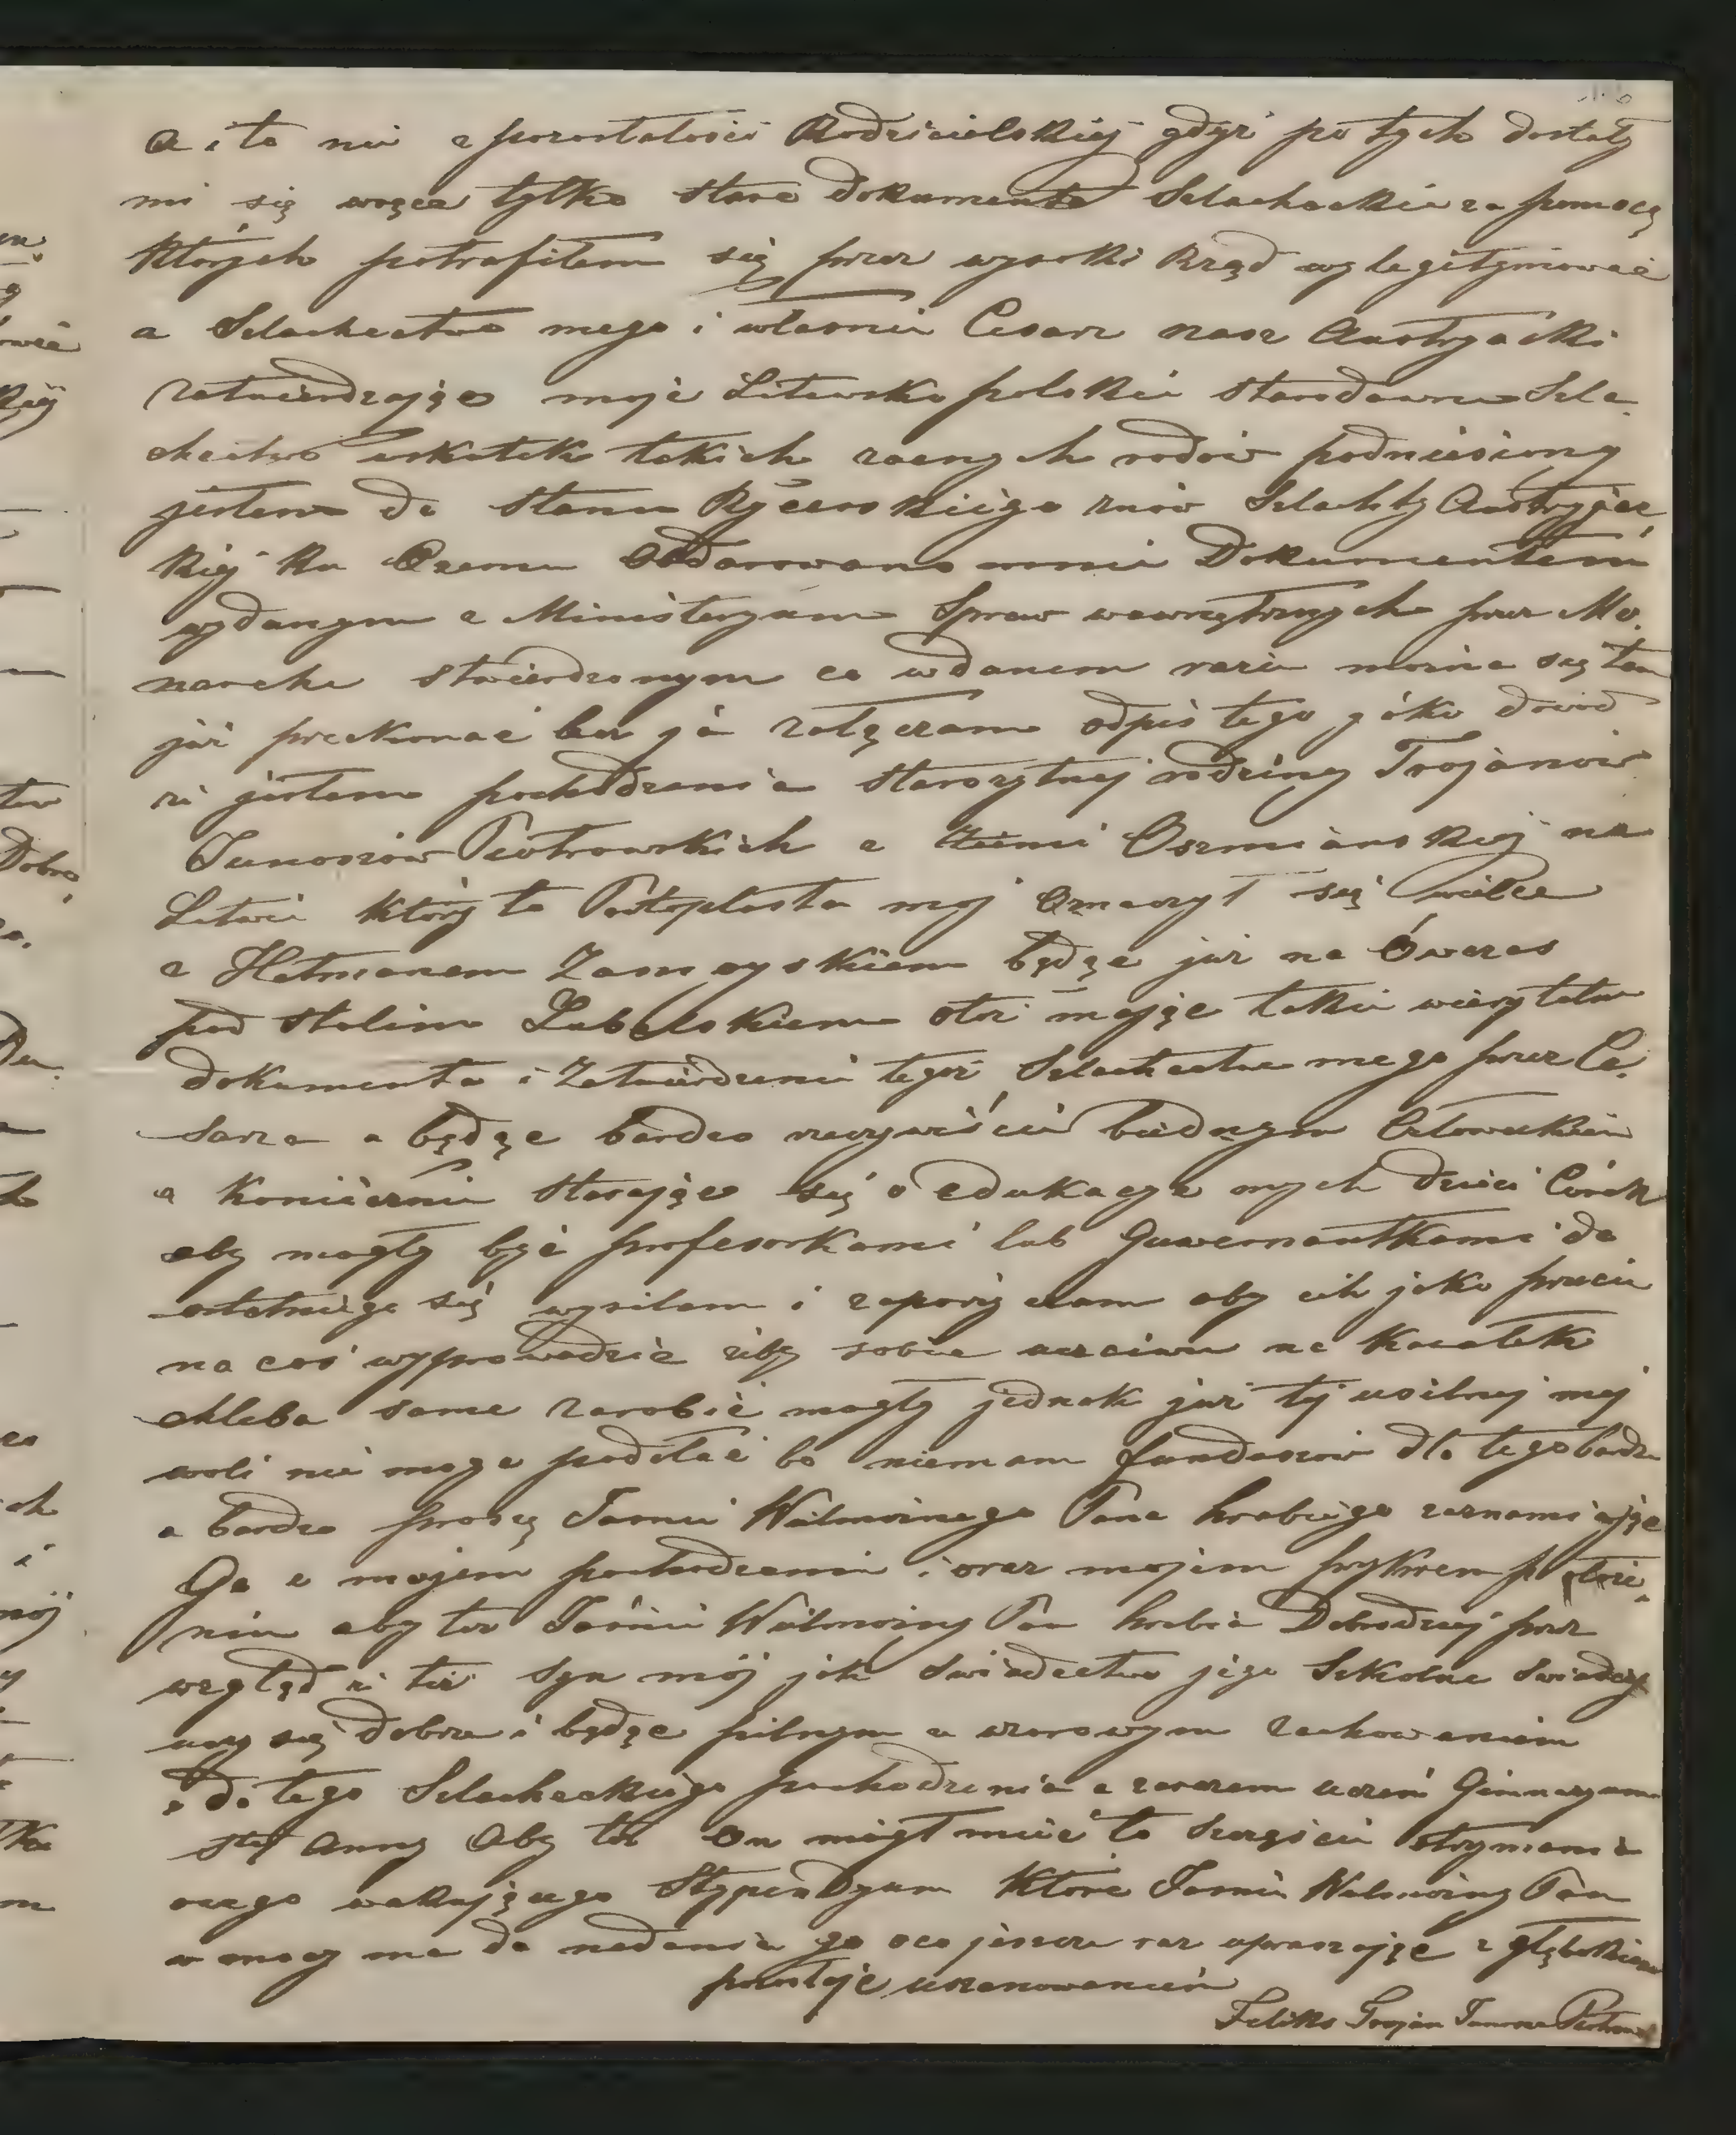 a i to nie z pozostałości Rodzicielskiej gdyż po tych dostały
mi się wręce tylko stare dokumenta Szlacheckie za pomocą
których potrafiłem się przez wysoki Rząd wylegitymować
z Szlachectwa mego i własnie Cesarz nasz Austryacki
zatwierdzając moje Litewsko polskie starodawne Szla-
chectwo wskutek takich zacnych rodów podniesiony
jestem do Stanu Rycerskiego znów Szlachty Austryjac-
kiej ku Czemu Obdarowano mnie Dokumentem
wydanym z Ministeryum Spraw wewnętrznych przez Mo-
narchę stwierdzonym co wdanem razie można się tem
już przekonać bez ją załączam odpis tego jako dowód
że jestem pochodzenia starożytnej rodziny Trojanów
Junoszów Piotrowskich z Ziemi Oszmianskiej na
Litwie który to Protoplasta moj Oznaczył się wielce
z Hetmanem Zamoyskiem będąc już na Ówczas
pod stolim Lubelskiem otoż mając takie wierytelne
dokumenta i Zatwierdzenie tegoż Szlachectwa mego przez Ce-
sarza a będąc bardzo rzeczywiście biednym Człowiekiem
a koniecznie starając się o edukacye mych dzieci Córek
aby mogły być profesorkami lub Guwernantkami do
ostatniego się wysilam i zapożyczam aby ich jako przecie
na coś wyprowadzić żeby sobie uczciwie na kawałek
chleba same zarobić mogły jednak już tej usilnej mej
woli nie moge podołać bo niemam funduszów dla tego bardzo
a bardzo proszę Jaśnie Wielmożnego Pana hrabiego zaznamiając
Go z mojem pochodzeniem i oraz mojem przykrem położe-
niu aby też Jaśnie Wielmożny Pan hrabia Dobrodziej przez
wzgląd że też syn mój jak swiadectwo jego Szkolne Swiadczy
uczy się dobrze i będąc pilnym a wzorowym zachowaniem
i do tego Szlacheckiego pochodzenia a zarazem uczeń Gimnazyum
Stej Anny Aby też On mógł mieć to Szczęście otrzymania
owego wakującego Stypendyum które Jaśnie Wielmożny Pan
w mocy ma do nadania go oco jeszcze raz upraszając z głębokiem
pozostaje uszanowaniem
Feliks Trojan Junosza Piotrowski